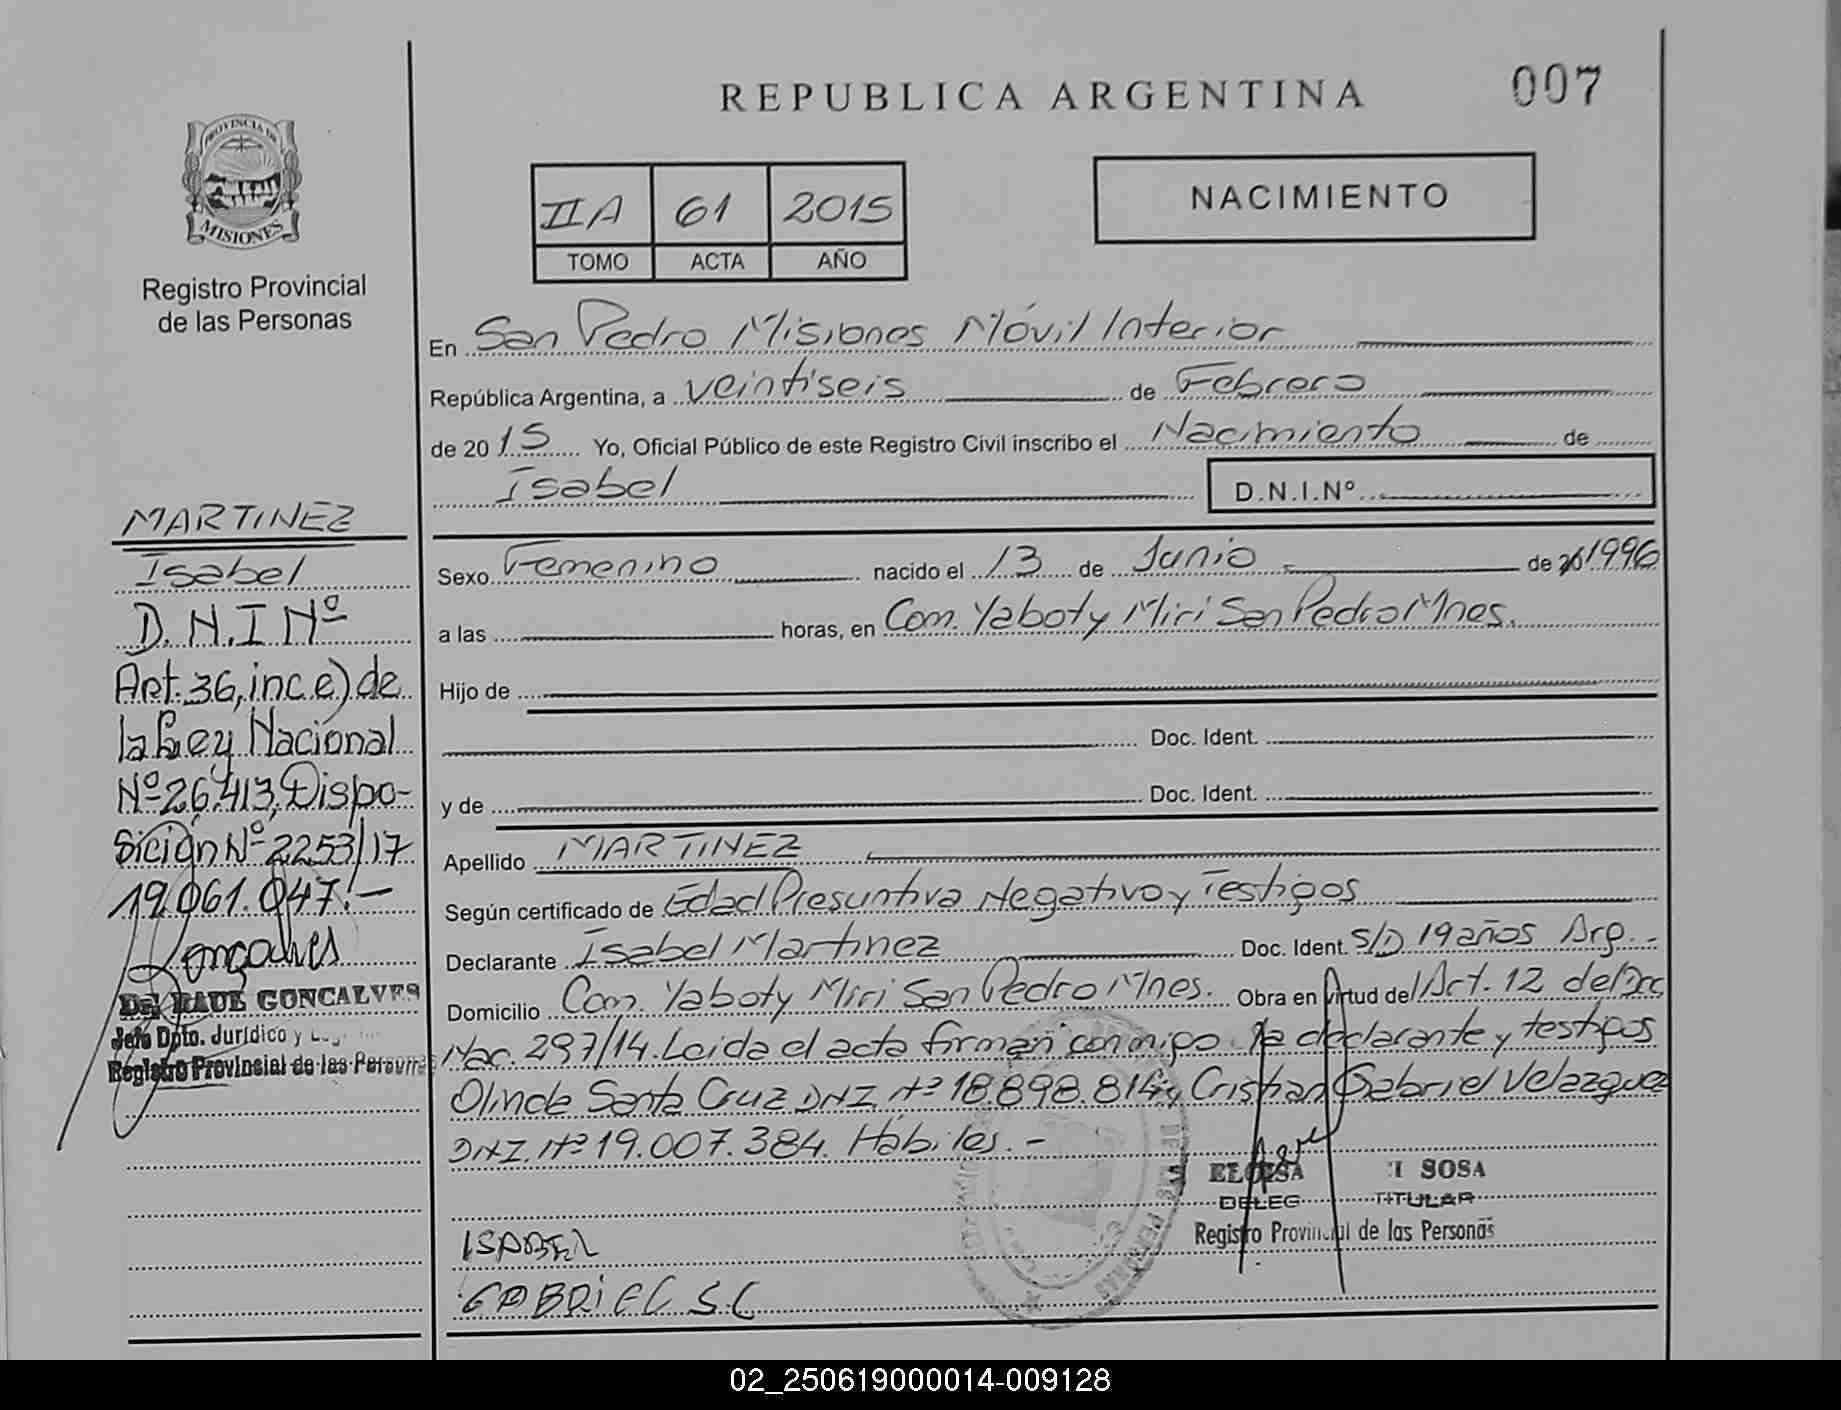 REPUBLICA ARGENTINA
007
PROVINCIA DE
MISIONES
Registro Provincial
de las Personas
IIA 61 2015
TOMO ACTA AÑO
NACIMIENTO
En San Pedro Misiones Móvil Interior
República Argentina, a veintiseis de Febrero
de 2015 Yo, Oficial Público de este Registro Civil inscribo el Nacimiento de
Isabel
D.N.I.Nº
Sexo Femenino nacido el 13 de Junio de 1996
a las horas, en Com. Yaboty Miri San Pedro Mnes.
Hijo de
Doc. Ident.
y de Doc. Ident.
Apellido MARTINEZ
Según certificado de Edad Presuntiva Negativo y Testigos
Declarante Isabel Martinez Doc. Ident. S/D 19 años Arg.-
Domicilio Com. Yaboty Miri San Pedro Mnes. Obra en virtud del Art. 12 del Dec
Nac. 297/14. Leida el acta firman conmigo la declarante y testigos
Olinda Santa Cruz DNI. Nº 18.898.814 y Cristian Gabriel Velazquez
DNI. Nº 19.007.384. Hábiles.-
ISABEL
GABRIEL S.C
SOSA
DELEG TITULAR
Registro Provincial de las Personas
MARTINEZ
Isabel
D.N.I Nº
Art. 36, inc.e) de
la Ley Nacional
Nº 26.413, Dispo-
sición Nº 2253/17
19.061.047.-
Gonçalves
RAUL GONCALVES
Jefe Dpto. Jurídico y
Registro Provincial de las Personas
02_250619000014-009128